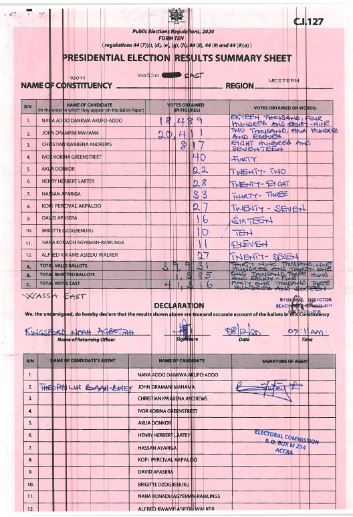 C.I.127
Public Elections Regulations, 2020
FORM TEN
( regulations 44 (7)(c), (d), (e), (g), (h), 44 (8), 44 (9) and 44 (9)(a) )
PRESIDENTIAL ELECTION RESULTS SUMMARY SHEET
EAST
WESTERN
NAME OF CONSTITUENCY
REGION
S/N. NAME OF CANDIDATE VOTES OBTAINED VOTES OBTAINED (IN WORDS)
(In the order in which they appear on the Ballot Paper) (IN FIGURES)
1. NANA ADDO DANKWA AKUFO-ADDO 18,489 EIGHTEEN THOUSAND, FOUR
HUNDRED AND EIGHTY-NINE
2. JOHN DRAMANI MAHAMA 20,411 THOUSAND, FOUR HUNDRED
AND ELEVEN
3. CHRISTIAN KWABENA ANDREWS 817 EIGHT HUNDRED AND
SEVENTEEN
4. IVOR KOBINA GREENSTREET 40 FORTY
5. AKUA DONKOR 22 TWENTY-TWO
6. HENRY HERBERT LARTEY 28 TWENTY-EIGHT
7. HASSAN AYARIGA 33 THIRTY-THREE
8. KOFI PERCIVAL AKPALOO 27 TWENTY-SEVEN
9. DAVID APASERA 16 SIXTEEN
10. BRIGITTE DZOGBENUKU 10 TEN
11. NANA KONADU AGYEMAN-RAWLINGS 11 ELEVEN
12. ALFRED KWAME ASIEDU WALKER 27 TWENTY-SEVEN
A. TOTAL VALID BALLOTS 39,931
B. TOTAL REJECTED BALLOTS 1,385
C. TOTAL VOTES CAST 41,316
WASSA EAST
REGIONAL DIRECTOR
DECLARATION
We, the undersigned, do hereby declare that the results shown above are true and accurate account of the ballots in this Constituency
KINGSFORD NOAH
Name of Returning Officer Signature Date Time
S/N NAME OF CANDIDATE'S AGENT NAME OF CANDIDATE SIGNATURE OF AGENT
1. NANA ADDO DANKWA AKUFO-ADDO
2. THEOPHILUS JOHN DRAMANI MAHAMA
3. CHRISTIAN KWABENA ANDREWS
4. IVOR KOBINA GREENSTREET
5. AKUA DONKOR
6. HENRY HERBERT LARTEY
7. HASSAN AYARIGA
8. KOFI PERCIVAL AKPALOO
9. DAVID APASERA
10. BRIGITTE DZOGBENUKU
11. NANA KONADU AGYEMAN-RAWLINGS
12. ALFRED KWAME ASIEDU WALKER
ELECTORAL COMMISSION
P. O. BOX M 214
ACCRA